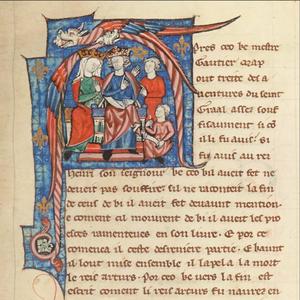 A pres ceo ke mestre
Gautier map
out treite des a
uentures du seint
Graal asses souf
fisaument si co
il li fu auis. Si
fu auis au rei
henri son seignour ke ceo kil aueit fet ne
deueit pas souffire. sil ne racontast la fin
de ceus de ki il aueit fet deuaunt mention
e coment cil morurent de ki il aueit les pro
esces ramenteues en son liure. E por ce
comenca il ceste derreniere partie. E kaunt
il lout mise ensemble il lapela la mort
le rei arturs. Por ceo ke uers la fin est
escrit coment li reis arturs fu naurez en